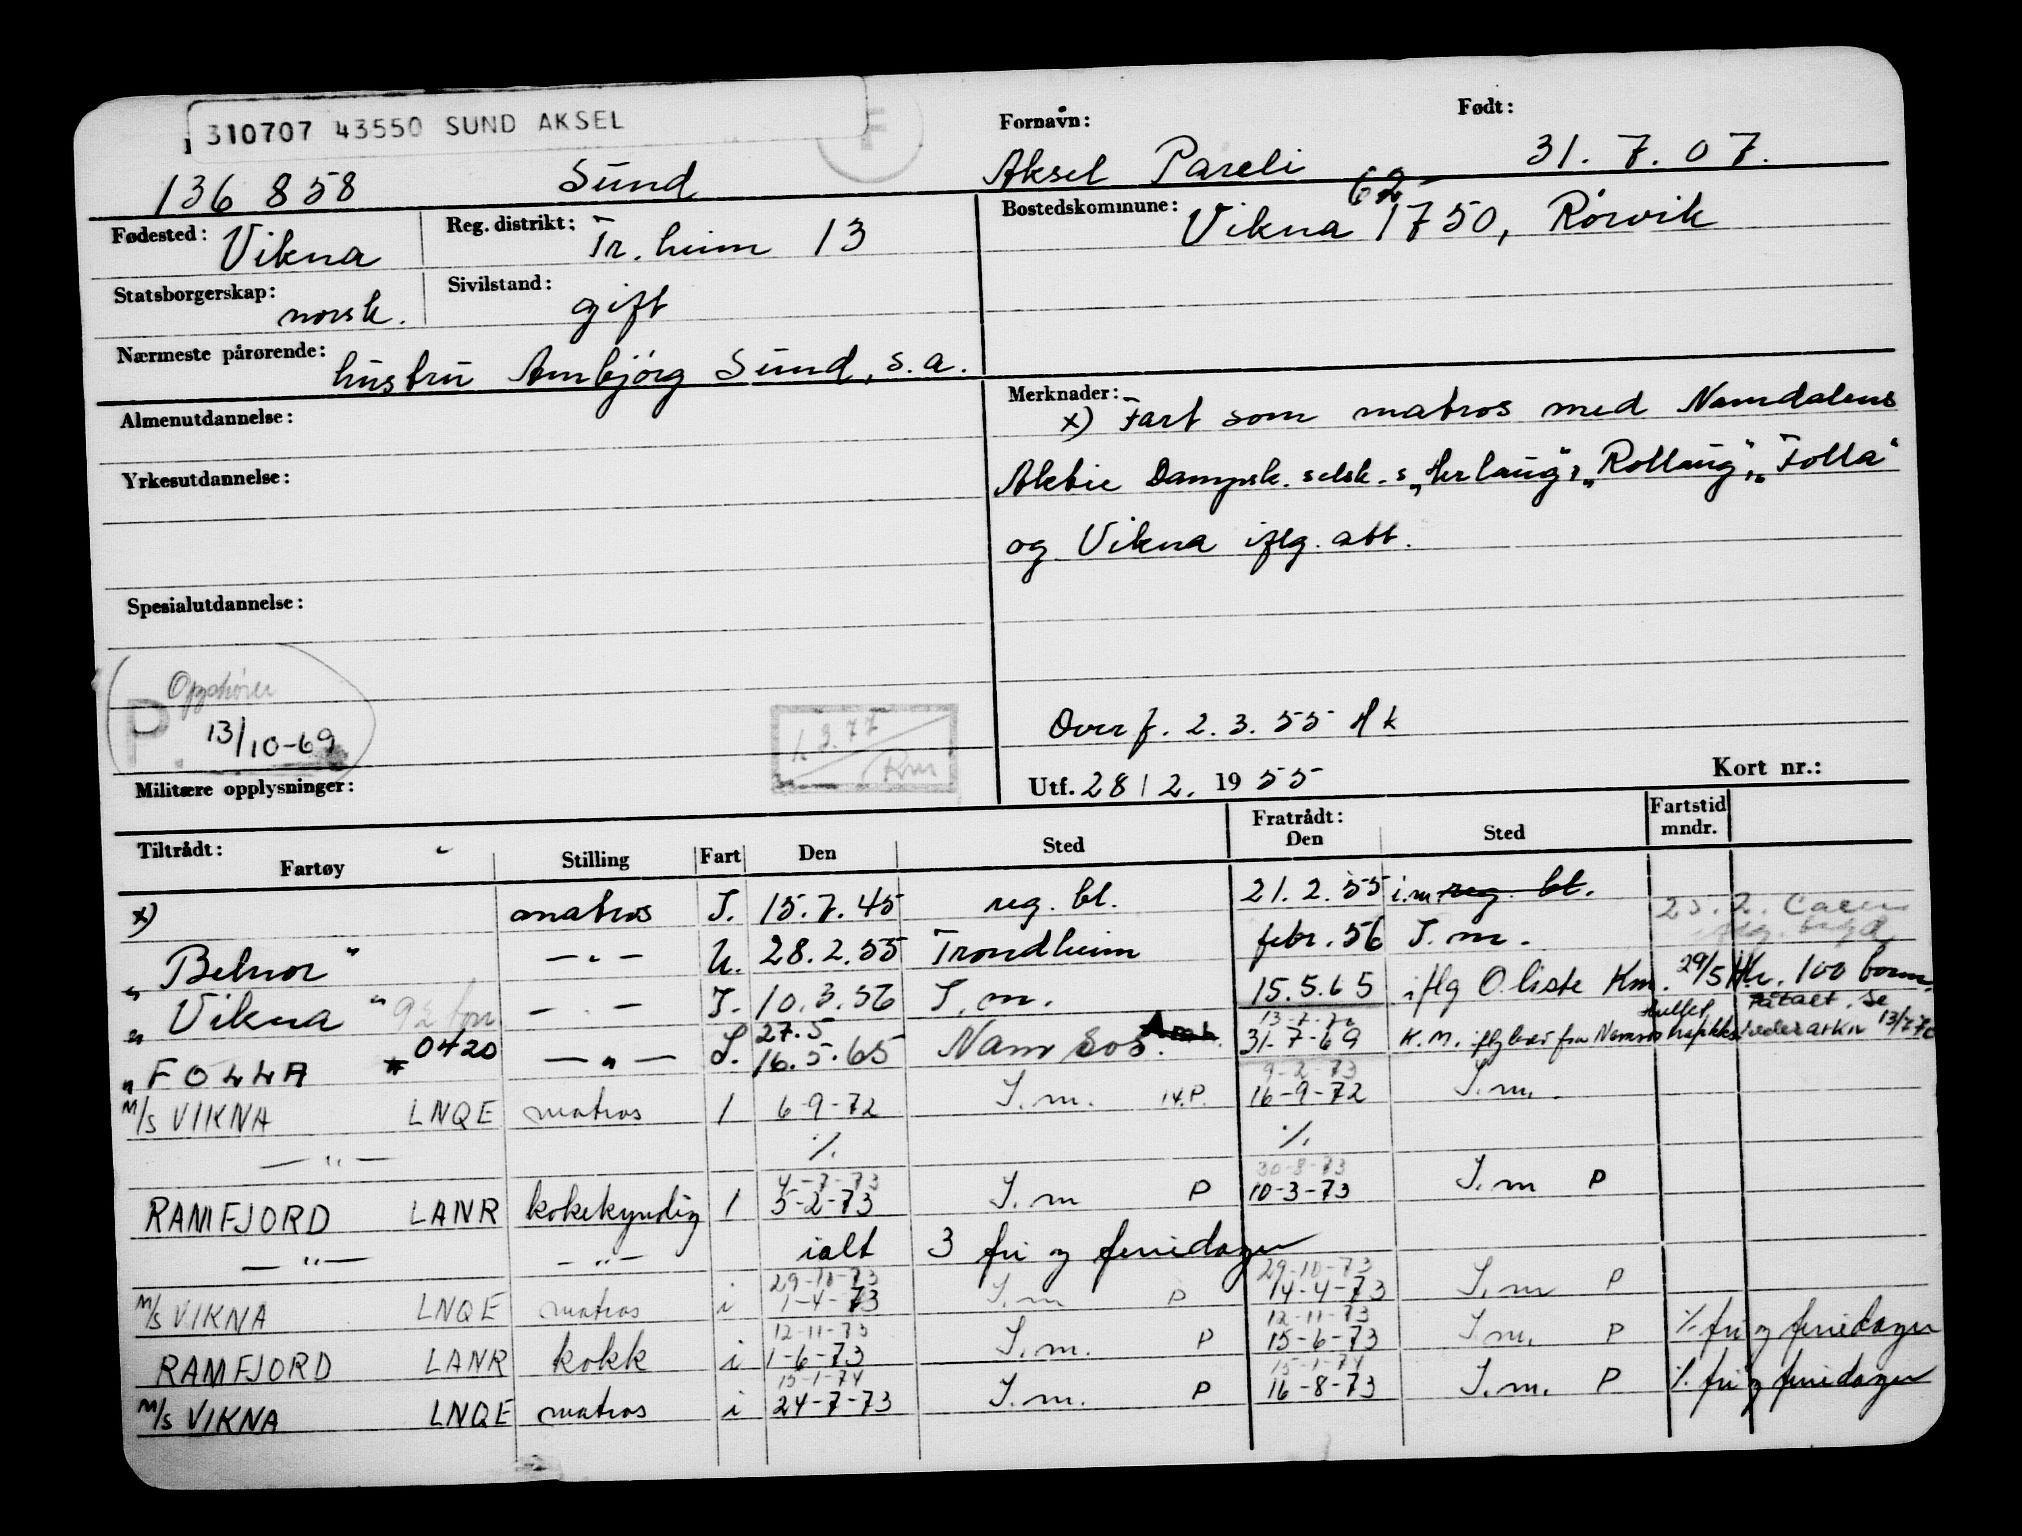 310707 43550 SUND AKSEL
F
Fornavn: Født:
136 858 Sund Aksel Pareli 31. 7. 07.
Fødested: Vikna Reg. distrikt: Tr. heim 13 Bostedskommune: Vikna 1750, Rörvik
62
Statsborgerskap: norsk. Sivilstand: gift
Nærmeste pårørende: hustru Annbjörg Sund, s.a.
Almenutdannelse: Merknader:
x) Fart som matros med Namdalens
Yrkesutdannelse: Aktie Dampsk. selsk. s „Herlaug", „Rollaug", „Folla"
og Vikna iflg. att.
Spesialutdannelse:
Opphører
P 13/10-69
Overf. 2. 3. 55 Hk
Militære opplysninger: Utf. 28/2. 1955 Kort nr.:
Tiltrådt: Fratrådt: Fartstid
Fartøy Stilling Fart Den Sted Den Sted mndr.
x) matros I. 15.7.45 reg. bl. 21.2.55 i.m. reg. bl.
„Belnor" — „ — U. 28.2.55 Trondheim febr. 56 I. m.
„Vikna" — „ — I. 10.3.56 I. m. 15.5.65 iflg O. liste Km. 29/5
27.5 13-7-70
„FOLLA 0420 — „ — I. 16.5.65 Namsos. 31-7-69 K.M.
9-2-73
M/S VIKNA LNQE matros 1 6-9-72 I. m. 14.P. 16-9-72 I. m.
— „ — %. %.
4-7-73 30-8-73
RAMFJORD LANR kokekyndig 1 5-2-73 I. m P 10-3-73 I. m P
— „ — — „ — ialt 3 fri og feriedager
29-10-73 29-10-73
M/S VIKNA LNQE matros i 1-4-73 I. m P 14-4-73 I. m P
12-11-73 12-11-73
RAMFJORD LANR kokk i 1-6-73 I. m. P 15-6-73 I. m. P %. fri og feriedager
15-1-74 15-1-74
M/S VIKNA LNQE matros i 24-7-73 I. m. P 16-8-73 I. m. P %. fri og feriedager